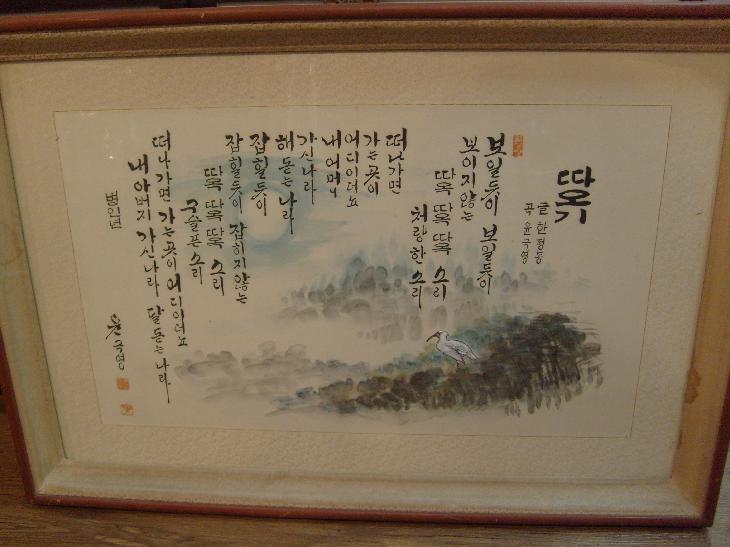 따옥이
글 한정동
곡 윤극영
보일듯이 보일듯이
보이지않는
따옥 따옥 따옥 소리
처량한 소리
떠나가면
가는곳이
어디이더뇨
내어머니
가신나라
해돋는나라
잡힐듯이
잡힐듯이 잡히지않는
따옥 따옥 따옥 소리
구슬픈 소리
떠나가면 가는곳이 어디이더뇨
내아버지 가신나라 달돋는나라
병인년
윤극영